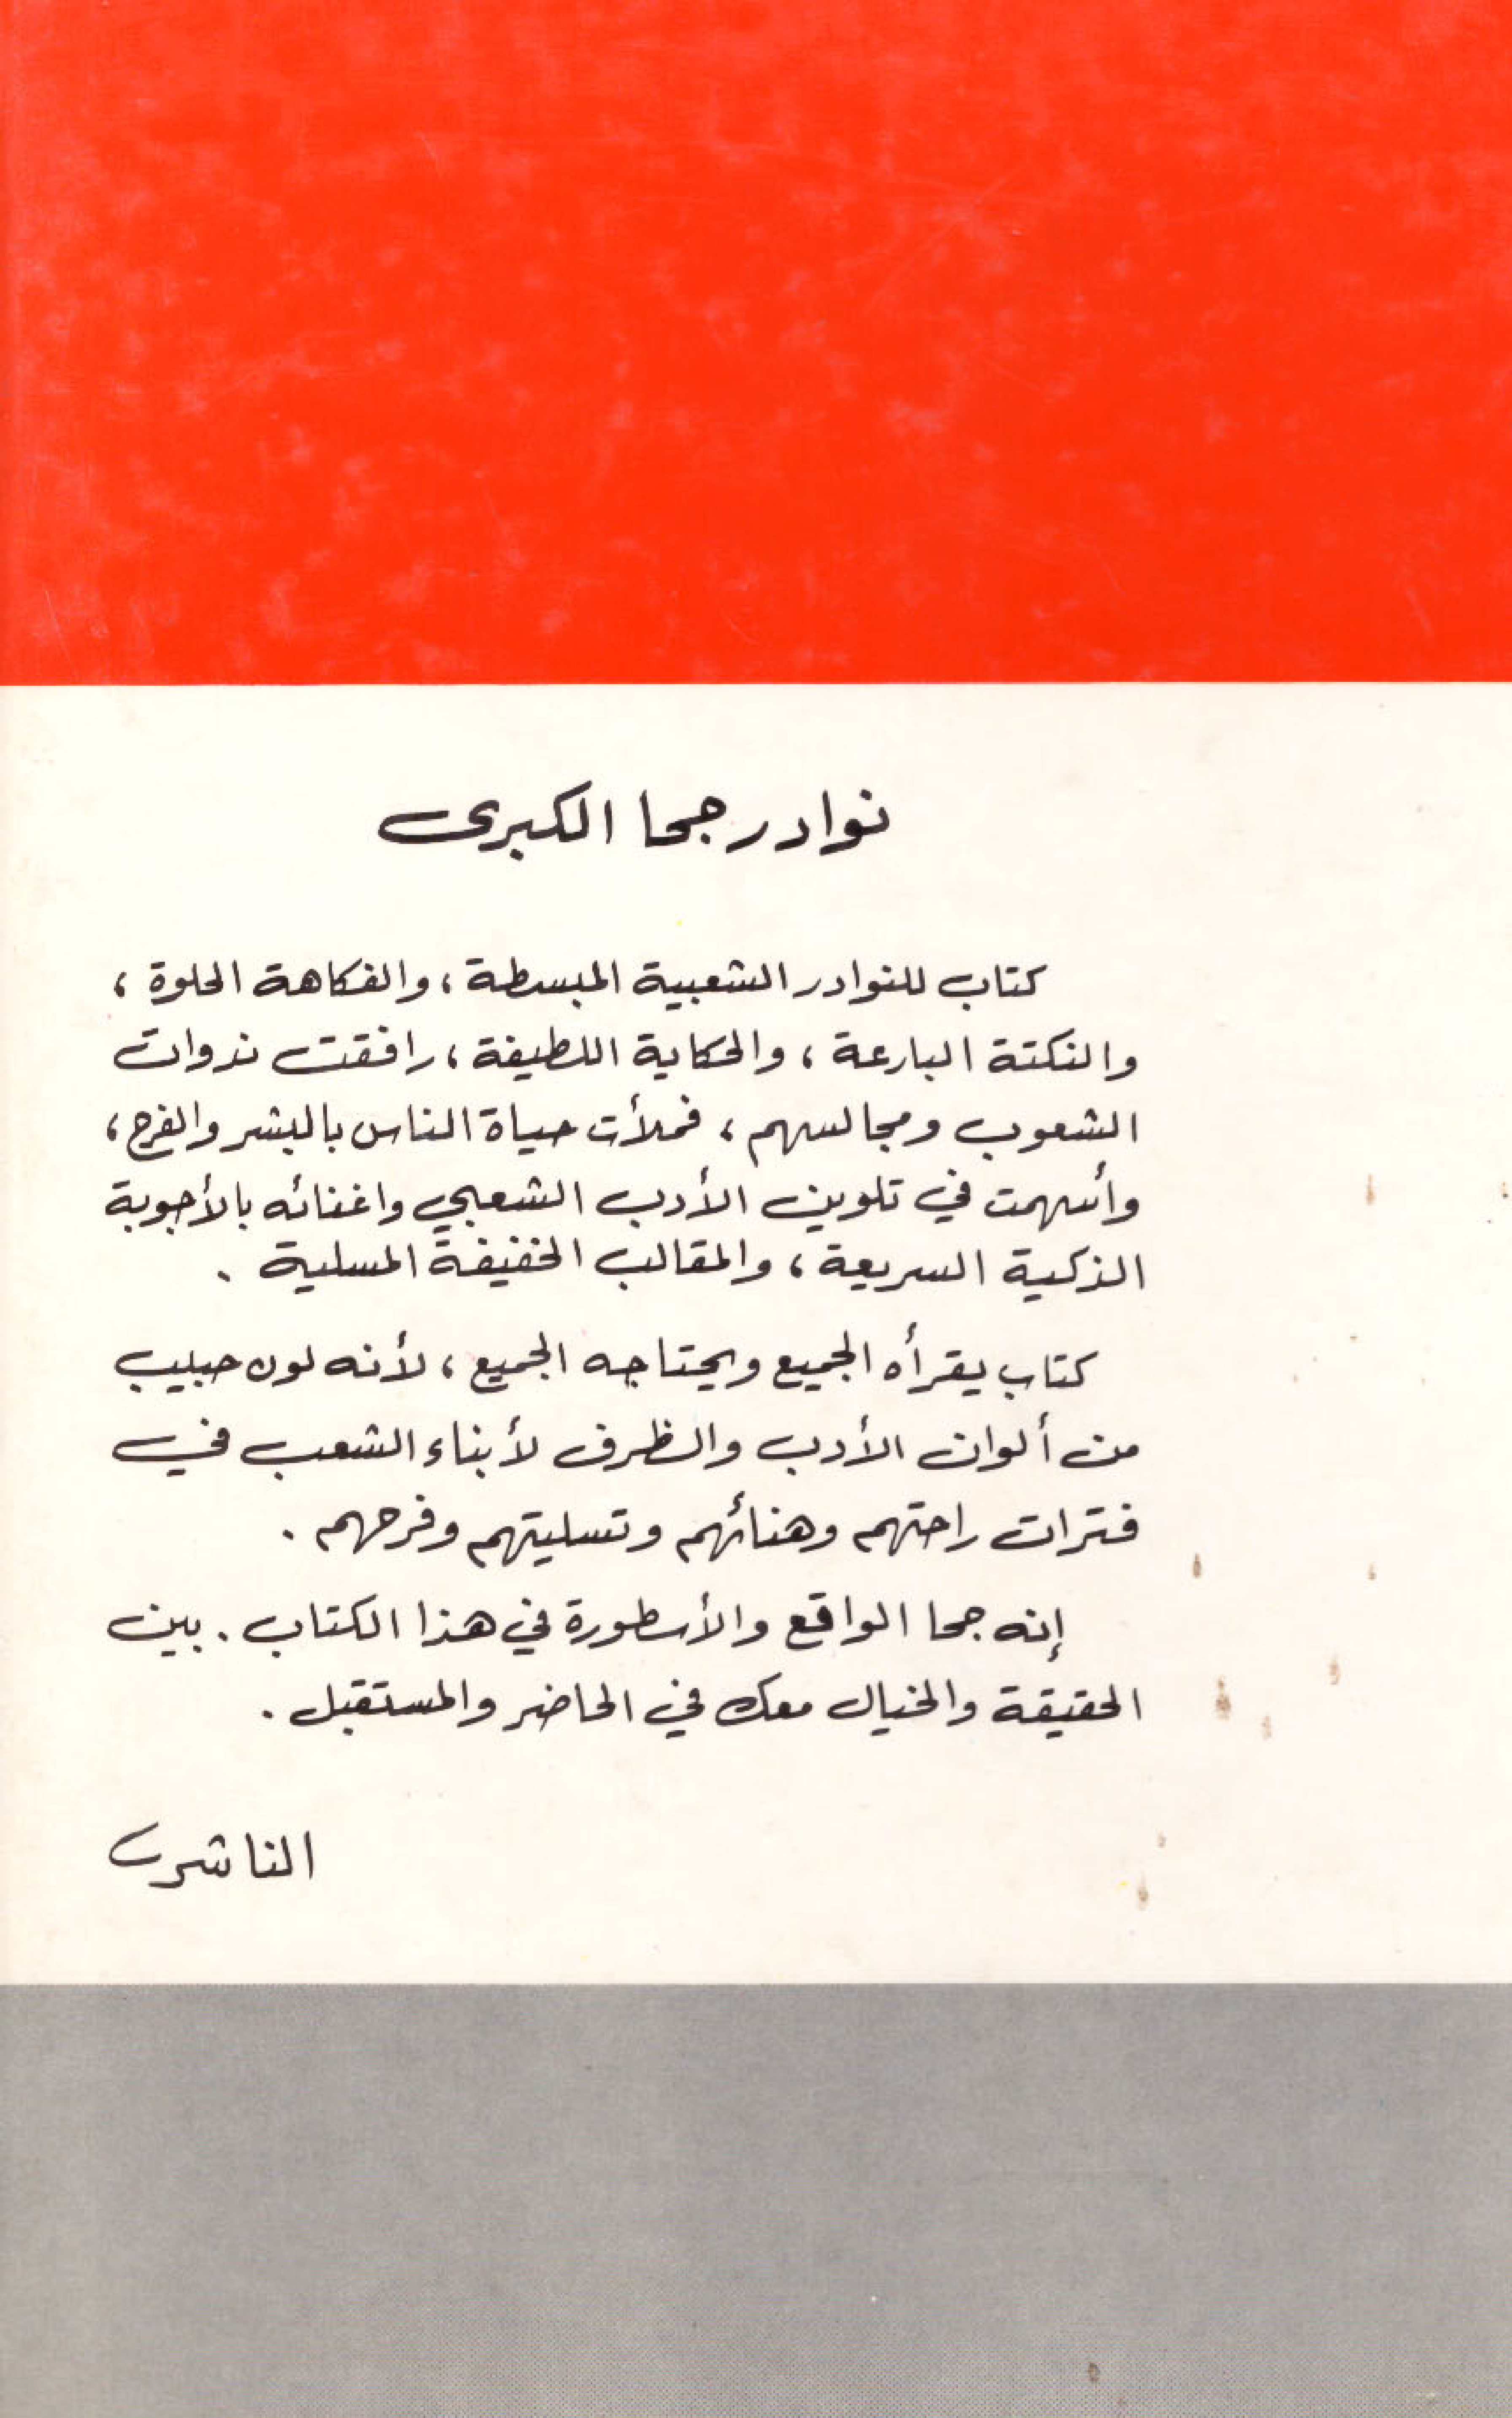 نوادر جحا الكبرى
كتاب للنوادر الشعبية المبسطة ، والفكاهة الحلوة ،
والنكتة البارعة ، والحكاية اللطيفة ، رافقت ندوات
الشعوب ومجالسهم ، فملأت حياة الناس بالبشر والفرح ،
وأسهمت في تلوين الأدب الشعبي واغنائه بالأجوبة
الذكية السريعة ، والمقالب الخفيفة المسلية .
كتاب يقرأه الجميع ويحتاجه الجميع ، لأنه لون حبيب
من ألوان الأدب والظرف لأبناء الشعب في
فترات راحتهم وهنائهم وتسليتهم وفرحهم .
إنه جحا الواقع والأسطورة في هذا الكتاب . بين
الحقيقة والخيال معك في الحاضر والمستقبل .
الناشر